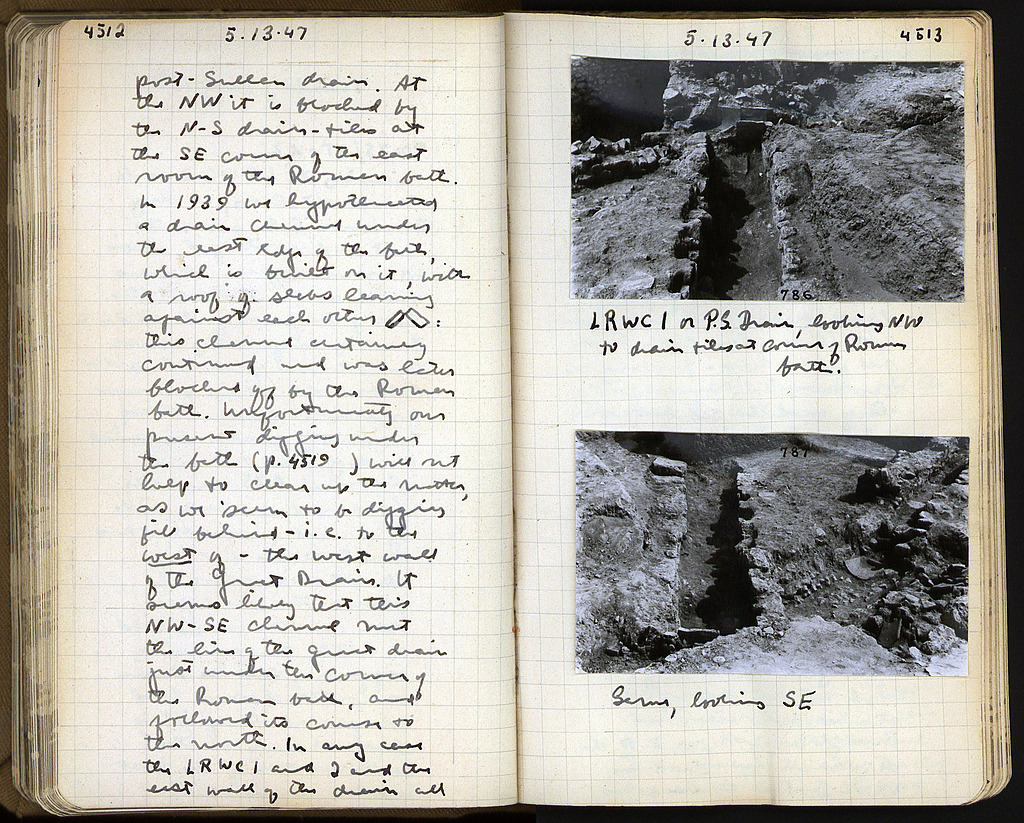 4512
5·13·47
post-Sullan drain. At
the NW it is blocked by
the N-S drain-tiles at
the SE corner of the east
room of the Roman bath.
In 1939 we hypothecated
a drain channel under
the east edge of the bath,
which is built on it, with
a roof of slabs leaning
against each other :
this channel certainly
continued and was later
blocked off by the Roman
bath. Unfortunately our
present digging under
the bath (p. 4519 ) will not
help to clear up the matter,
as we seem to be digging
fill behind - i.e. to the
west of - the west wall
of the Great Drain. It
seems likely that this
NW-SE channel met
the line of the great drain
just under the corner of
the Roman bath, and
followed its course to
the north. In any case
the LRWC1 and 2 and the
east wall of the drain all
5·13·47
4513
786
LRWC1 or P.S. Drain, looking NW
to drain tiles at corner of Roman
bath.
787
Same, looking SE